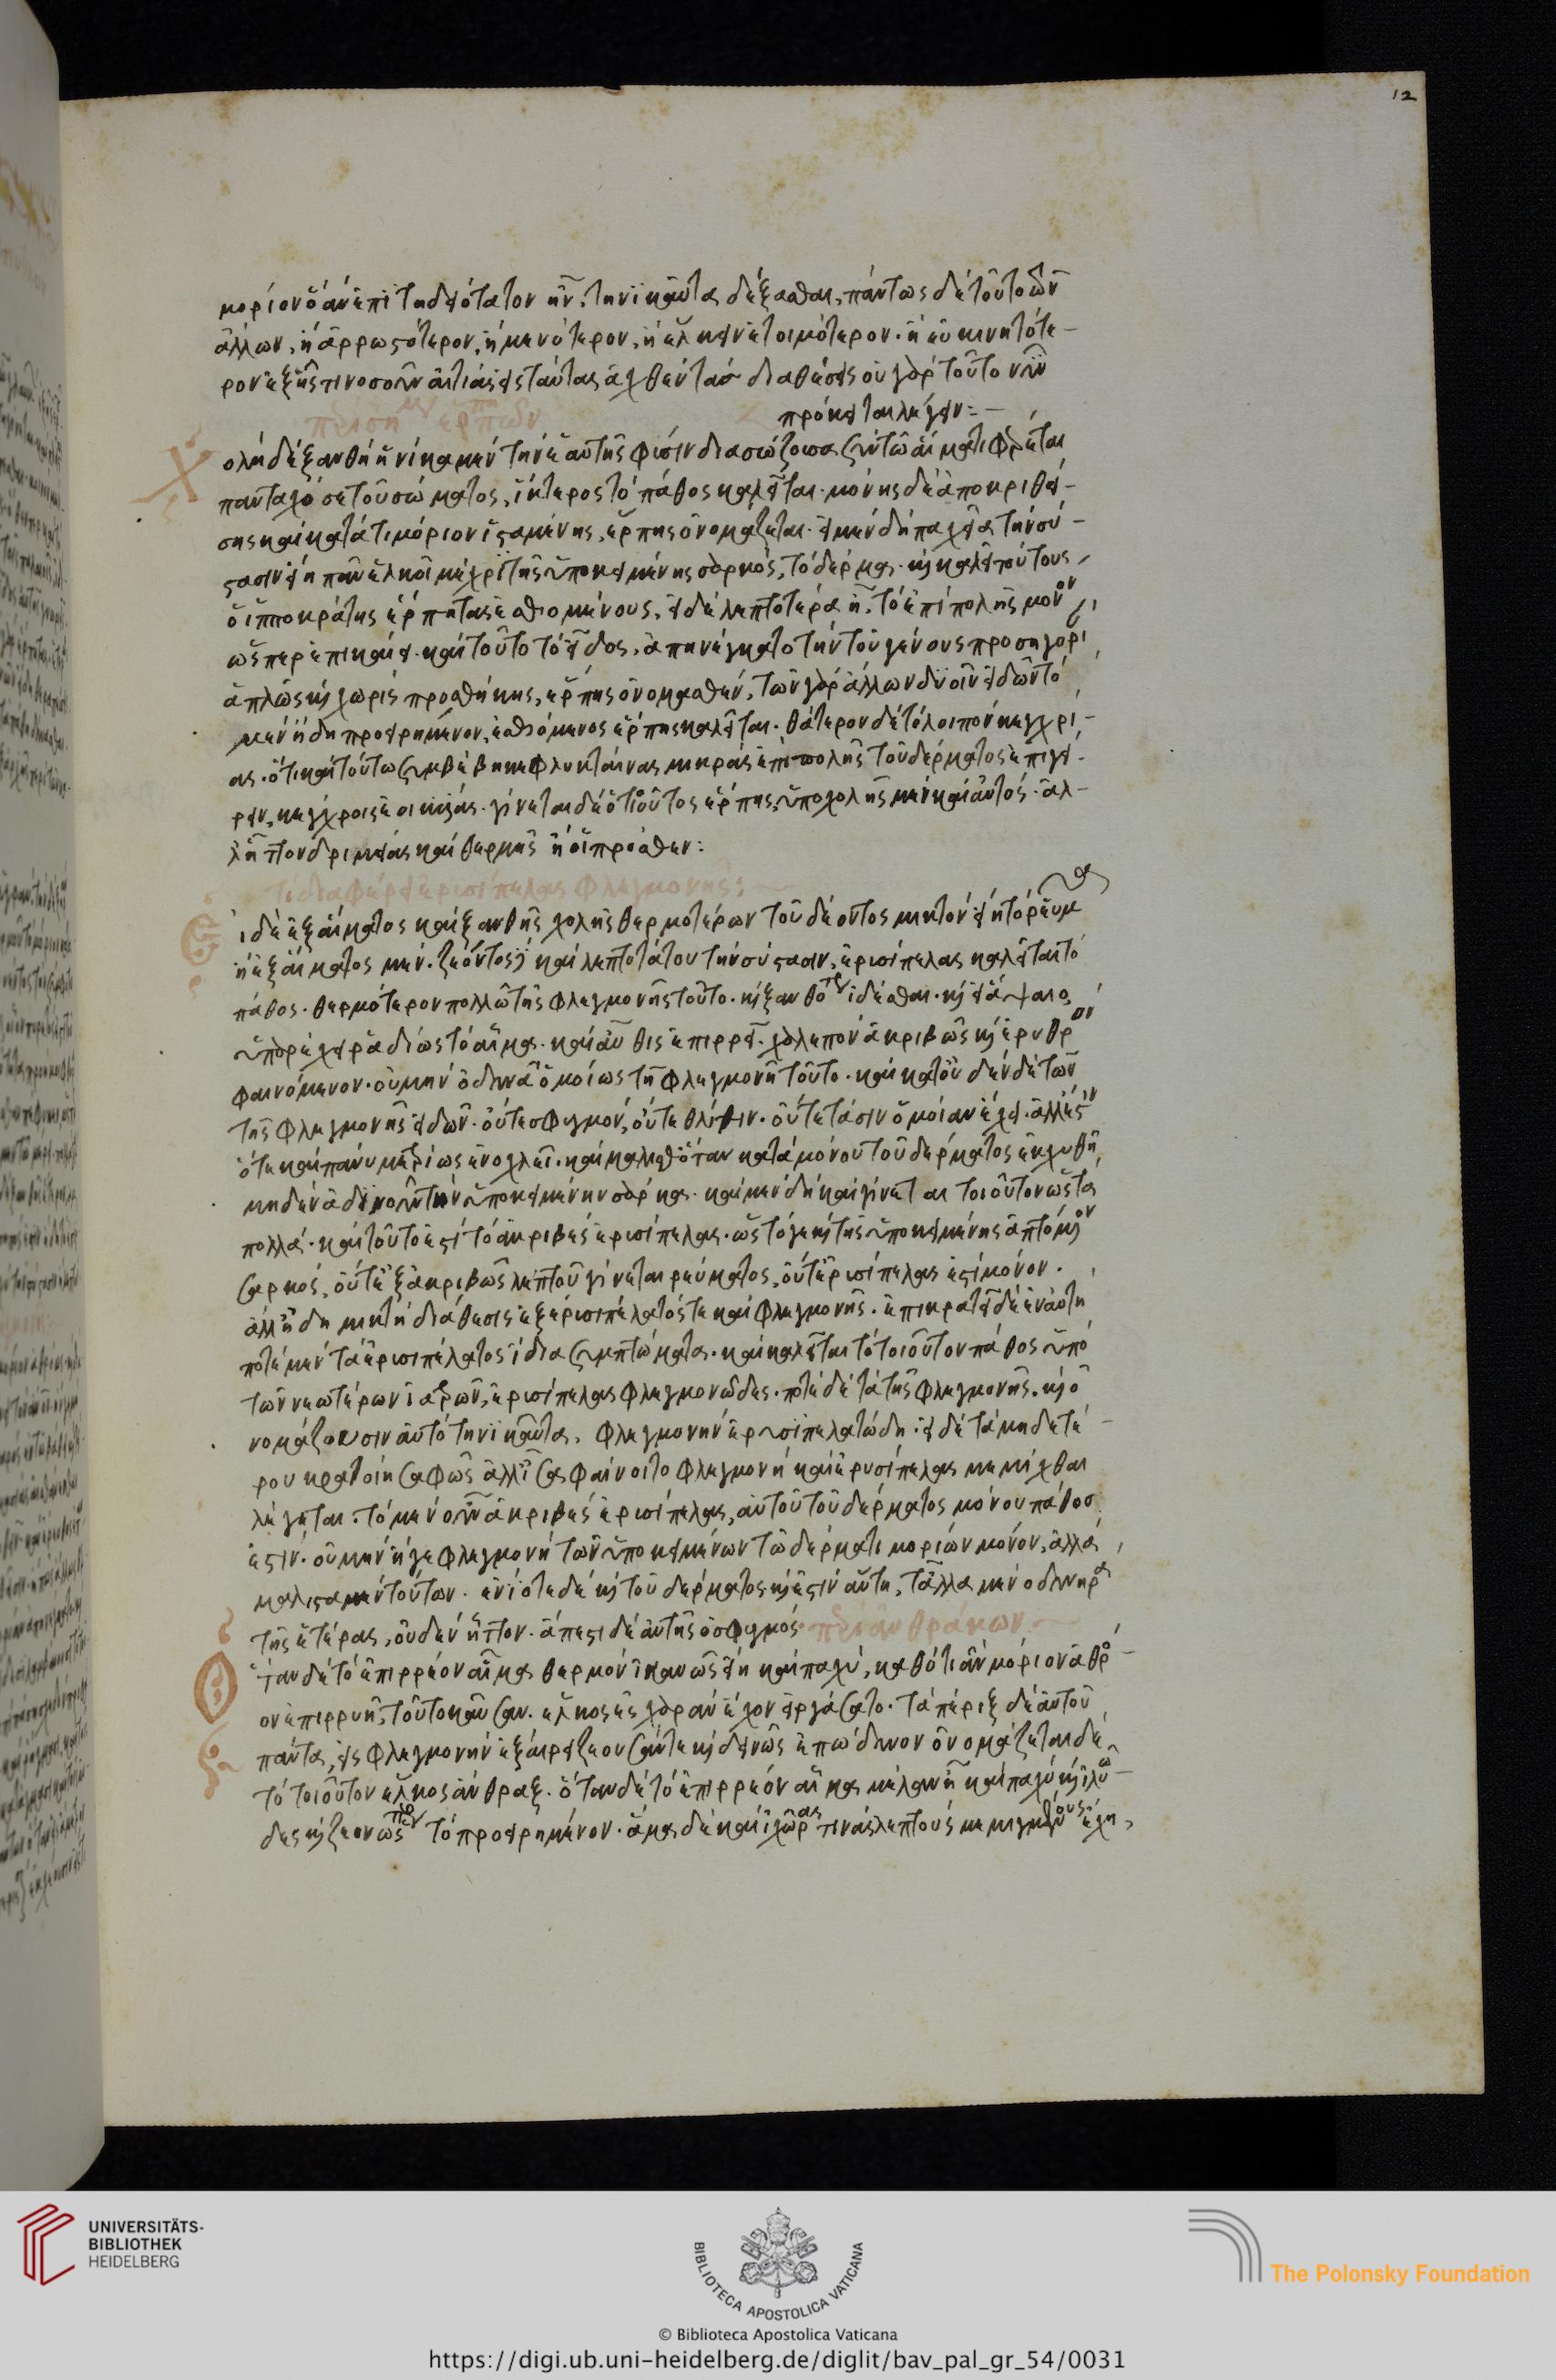 12
μόριον ὃ ἂν ἐπιτηδειότατον ἦν τηνικαῦτα δέξασθαι, πάντως δὲ τοῦτο τῶν
ἄλλων, ἢ ἀρρωστότερον, ἢ μανότερον, ἢ ἕλκειν ἑτοιμότερον. ἢ εὐκινητότε-
ρον ἐξ ἧς τινοσοῦν αἰτίας εἰς ταύτας ἀχθέντας διαθέσεις οὐ γὰρ τοῦτο νῦν
πρόκειται λέγειν:-
Χολὴ δὲ ξανθὴ ἡνίκα μὲν τὴν ἑαυτῆς φύσιν διασώζουσα σὺν τῷ αἵματι φέρεται
πανταχόσε τοῦ σώματος, ἴκτερος τὸ πάθος καλεῖται. μόνης δὲ ἀποκριθεί-
σης καὶ κατά τι μόριον ἱσταμένης, ἕρπης ὀνομάζεται. εἰ μὲν δὴ παχεῖα τὴν σύ-
στασιν εἴη πᾶν ἑλκοῖ μέχρι τῆς ὑποκειμένης σαρκός, τὸ δέρμα. καὶ καλεῖ τούτους
ὁ ἱπποκράτης ἕρπητας ἐσθιομένους. εἰ δὲ λεπτοτέρα ᾖ, τὸ ἐπιπολῆς μόνον
ὥσπερ ἐπικαίει. καὶ τοῦτο τὸ εἶδος, ἀπηνέγκατο τὴν τοῦ γένους προσηγορί
ἁπλῶς καὶ χωρὶς προσθήκης, ἕρπης ὀνομασθέν, τῶν γὰρ ἄλλων δυοῖν εἰδῶν τὸ
μὲν ἤδη προειρημένον, ἐσθιόμενος ἕρπης καλεῖται. θάτερον δὲ τὸ λοιπὸν κεγχρι-
ας. ὅτι καὶ τούτω συμβέβηκε φλυκταίνας μικρὰς ἐπιπολῆς τοῦ δέρματος ἐπεγεί-
ρειν, κέγχροις ἐοικυίας. γίνεται δὲ ὅτι οὗτος ἕρπης, ὑπὸ χολῆς μὲν καὶ αὐτὸς. ἀλ-
λ' ἧττον δριμείας καὶ θερμῆς ἢ οἱ πρόσθεν:
τί διαφέρει ἐρισίπελας φλεγμονῆς:
Εἰ δὲ ἐξ αἵματος καὶ ξανθῆς χολῆς θερμοτέρων τοῦ δέοντος μικτὸν εἴη τὸ ῥεῦμα
ἢ ἐξ αἵματος μὲν. ζέοντος καὶ λεπτοτάτου τὴν σύστασιν, ἐρισίπελας καλεῖται τὸ
πάθος. θερμότερον πολλῷ τῆς φλεγμονῆς τοῦτο. καὶ ξανθότερον ἰδέσθαι. καὶ εἰ ἅψαιο,
ὑπορέχει ῥᾳδίως τὸ αἷμα. καὶ αὖθις ἐπιρρεῖ. χαλεπὸν ἀκριβῶς καὶ ἐρυθρὸν
φαινόμενον. οὐ μὴν ὀδυνᾷ ὁμοίως τῇ φλεγμονῇ τοῦτο. καὶ κατ' οὐδὲν δὲ τῶν
τῆς φλεγμονῆς εἰδῶν. οὔτε σφυγμόν, οὔτε θλίψιν. οὔτε τάσιν ὁμοίαν ἔχει. ἀλλ' ἔστιν
ὅτε καὶ πάνυ μετρίως ἐνοχλεῖ. καὶ μάλισθ' ὅταν κατὰ μόνου τοῦ δέρματος ἐκχυθῇ
μηδὲν ἀδικοῦν τὴν ὑποκειμένην σάρκα. καὶ μὲν δὴ καὶ γίνεται τοιοῦτον ὡς τὰ
πολλά. καὶ τοῦτό ἐστι τὸ ἀκριβὲς ἐρισίπελας. ὡς τό γε καὶ τῆς ὑποκειμένης ἁπτόμενον
σαρκός, οὔτε ἐξ ἀκριβῶς λεπτοῦ γίνεται ῥεύματος, οὔτ' ἐρισίπελας ἐστὶ μόνον.
ἀλλ' ἤδη μικτὴ διάθεσις ἐξ ἐρισιπέλατός τε καὶ φλεγμονῆς. ἐπικρατεῖ δὲ ἐν αὐτῇ
ποτὲ μὲν τὰ ἐρισιπέλατος ἴδια συμπτώματα. καὶ καλεῖται τὸ τοιοῦτον πάθος ὑπὸ
τῶν νεωτέρων ἰατρῶν, ἐρισίπελας φλεγμονῶδες. ποτὲ δὲ τὰ τῆς φλεγμονῆς. καὶ ὀ
νομάζουσιν αὐτὸ τηνικαῦτα, φλεγμονὴν ἐρυσιπελατώδη. εἰ δὲ τὰ μηδετέ-
ρου κρατοίη σαφῶς ἀλλ' ἴσα φαίνοιτο φλεγμονὴ καὶ ἐρυσίπελας μεμίχθαι
λέγεται. τὸ μὲν οὖν ἀκριβὲς ἐρισίπελας, αὐτοῦ τοῦ δέρματος μόνου πάθος
ἐστιν. οὐ μὴν ἥ γε φλεγμονὴ τῶν ὑποκειμένων τῷ δέρματι μορίων μόνον, ἀλλὰ
μάλιστα μὲν τούτων. ἐνίοτε δὲ καὶ τοῦ δέρματος καὶ ἐστὶν αὕτη, τἆλλα μὲν ὀδυνηρὰ
τῆς ἑτέρας, οὐδὲν ἧττον. ἄπεστι δὲ αὐτῆς ὁ σφυγμός. περὶ ἀνθράκων
Ὅταν δὲ τὸ ἐπιρρέον αἷμα θερμὸν ἱκανῶς εἴη καὶ παχύ, καθότι ἂν μόριον ἀθρό-
ον ἐπιρρυῇ, τοῦτο καῦσαν. ἕλκος ἐσχάραν ἔχον εἰργάσατο. τὰ πέριξ δὲ αὐτοῦ
πάντα, εἰς φλεγμονὴν ἐξαίρει ζέουσάν τε καὶ δεινῶς ἐπώδυνον ὀνομάζεται δὲ
τὸ τοιοῦτον ἕλκος ἄνθραξ. ὅταν δὲ τὸ ἐπιρρέον αἷμα μέλαν ᾖ καὶ παχὺ καὶ ἰλυῶ-
δες καὶ ζέον ὥσπερ τὸ προειρημένον. ἅμα δὲ καὶ ἰχῶρας τινὰς λεπτοὺς μεμιγμένους ἔχῃ,
UNIVERSITÄTS-
BIBLIOTHEK
HEIDELBERG
BIBLIOTECA APOSTOLICA VATICANA
The Polonsky Foundation
© Biblioteca Apostolica Vaticana
https://digi.ub.uni-heidelberg.de/diglit/bav_pal_gr_54/0031